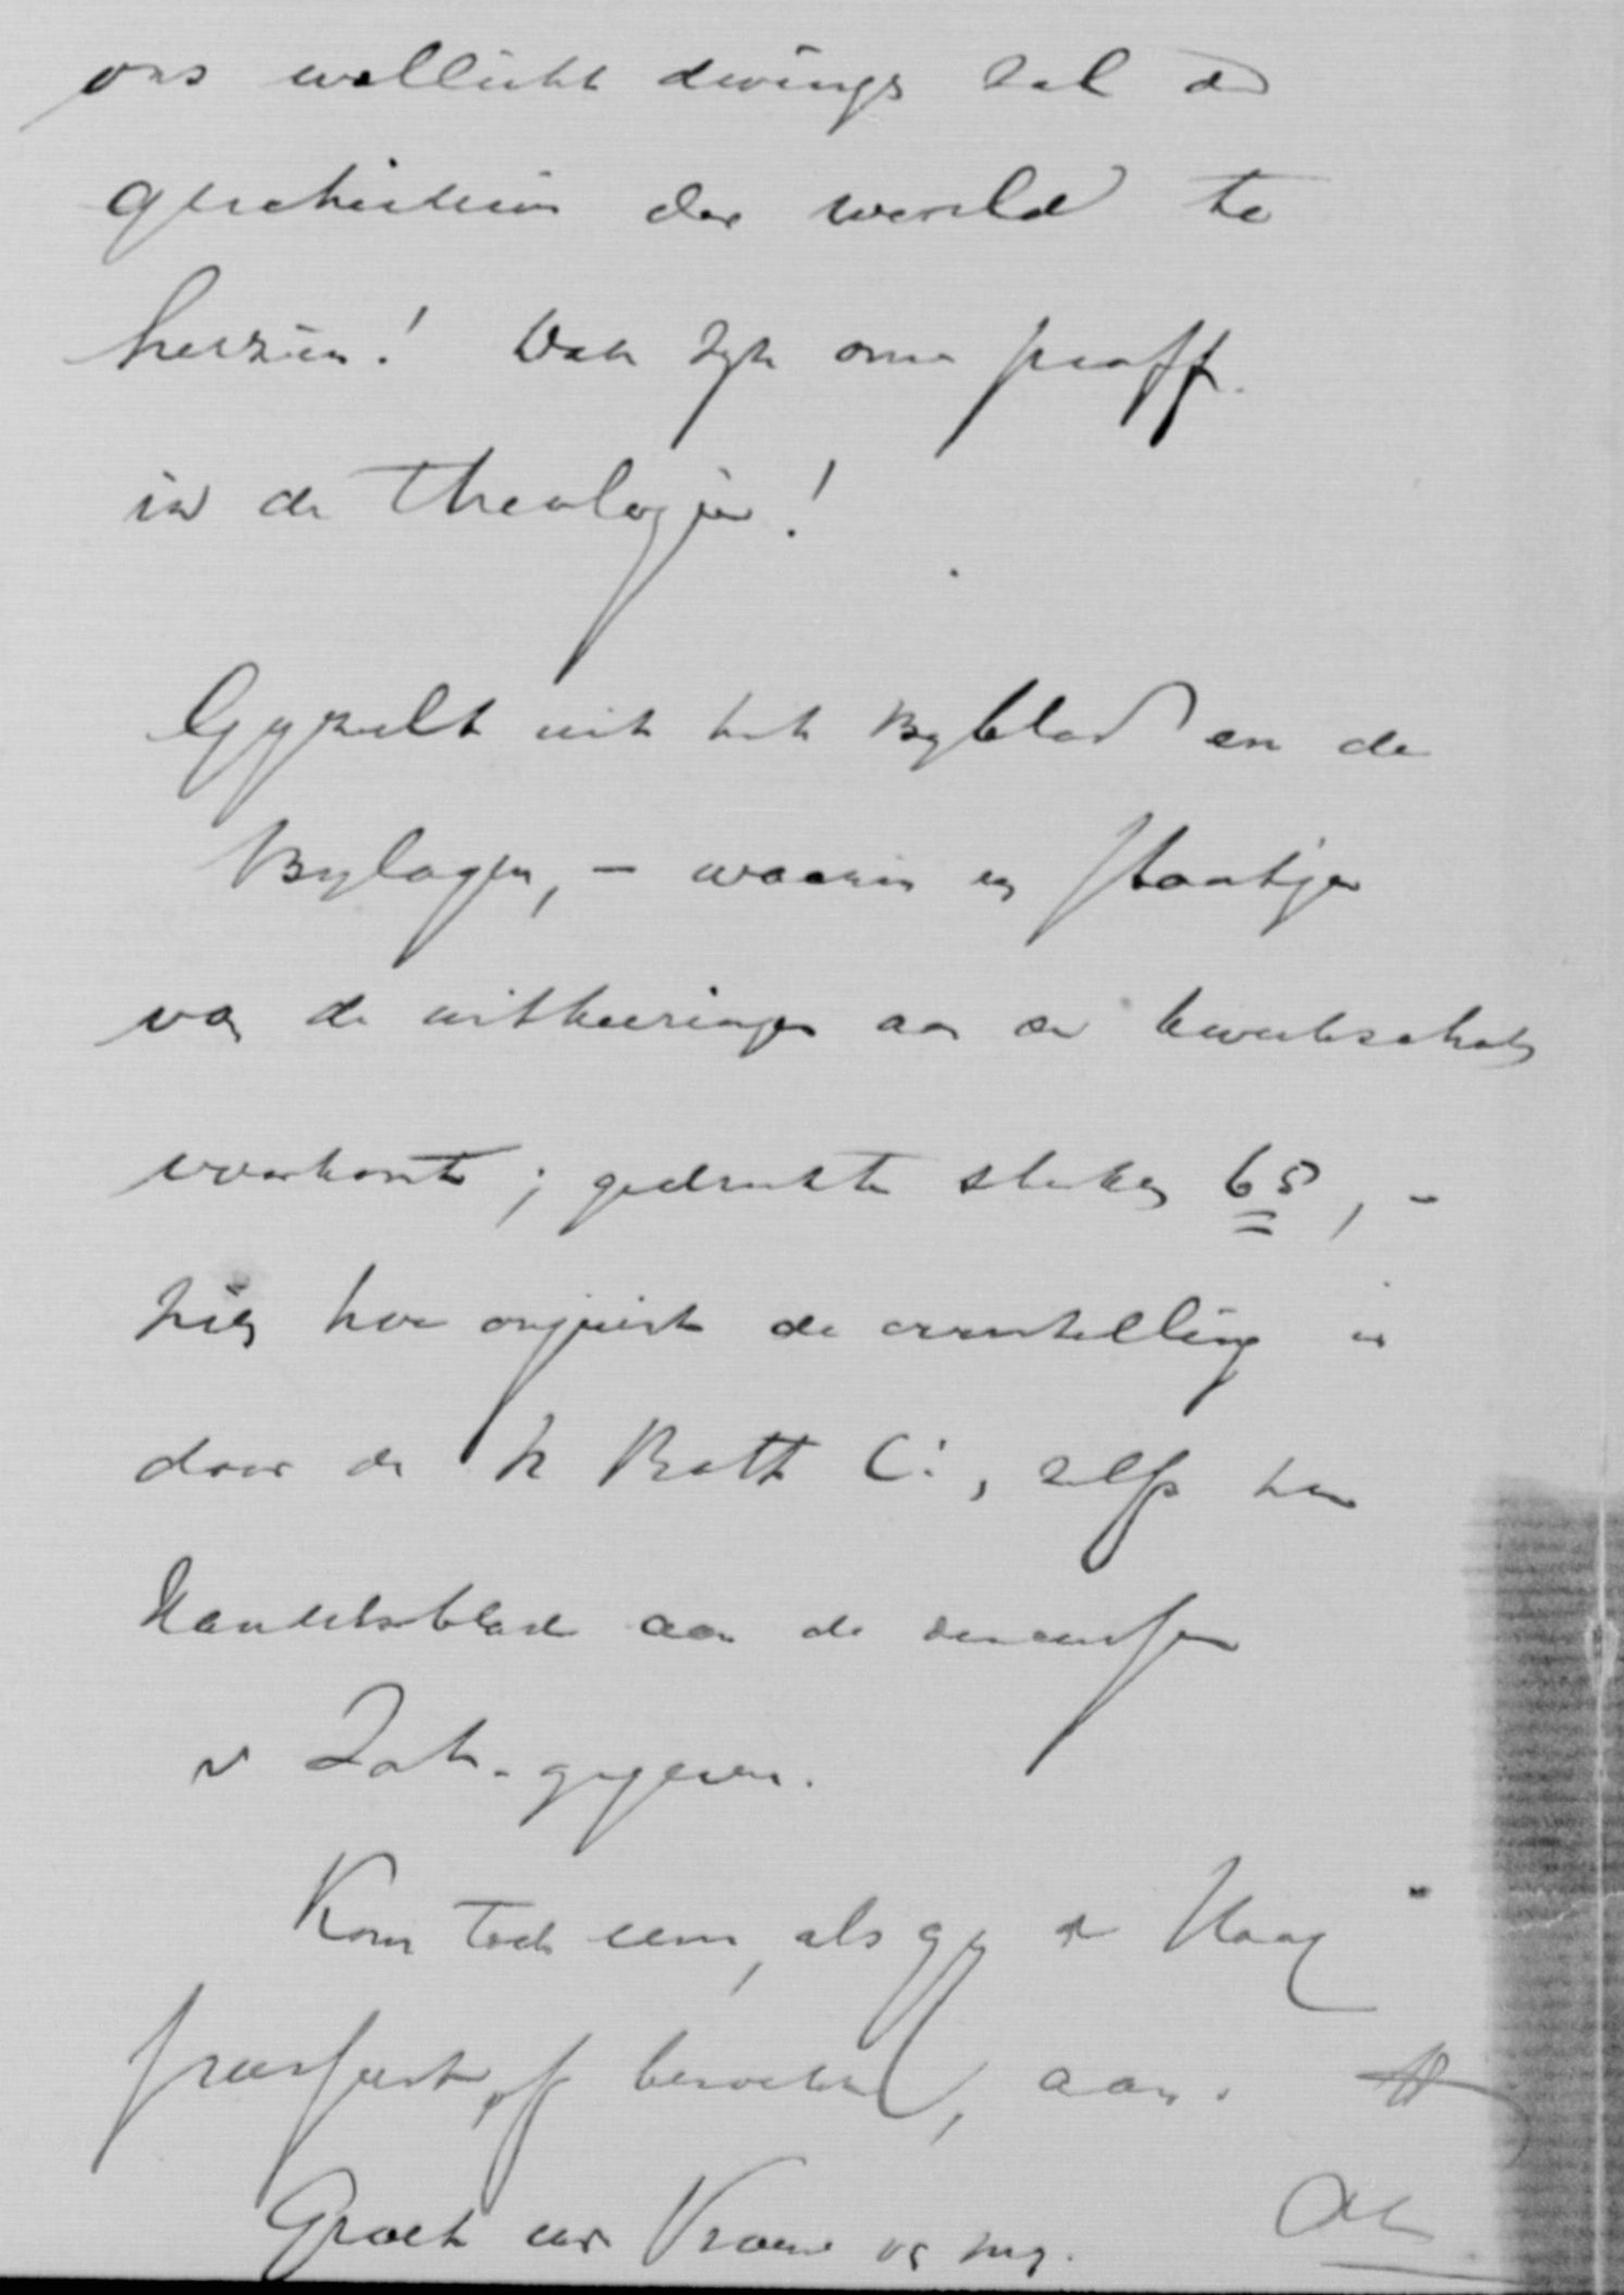 ons wellicht dwingt zal de
geschiedenis der wereld te
herzien! Dat zijn onze proff.
in de Theologie!
Gy zult uit het Byblad en de
Bylagen, – waarin een staatje
van de uitkeeringen aan de kweekscholen
voorkomt; gedrukte stukken 68, –
zien hoe onjuist de voorstelling is
door de h C:, zelfs het
Handelsblad aan de
v Zat. gegeven.
Kom toch eens, als gy den Haag
passeert, of bezoekt, aan.
Groet uw Vrouw van my.